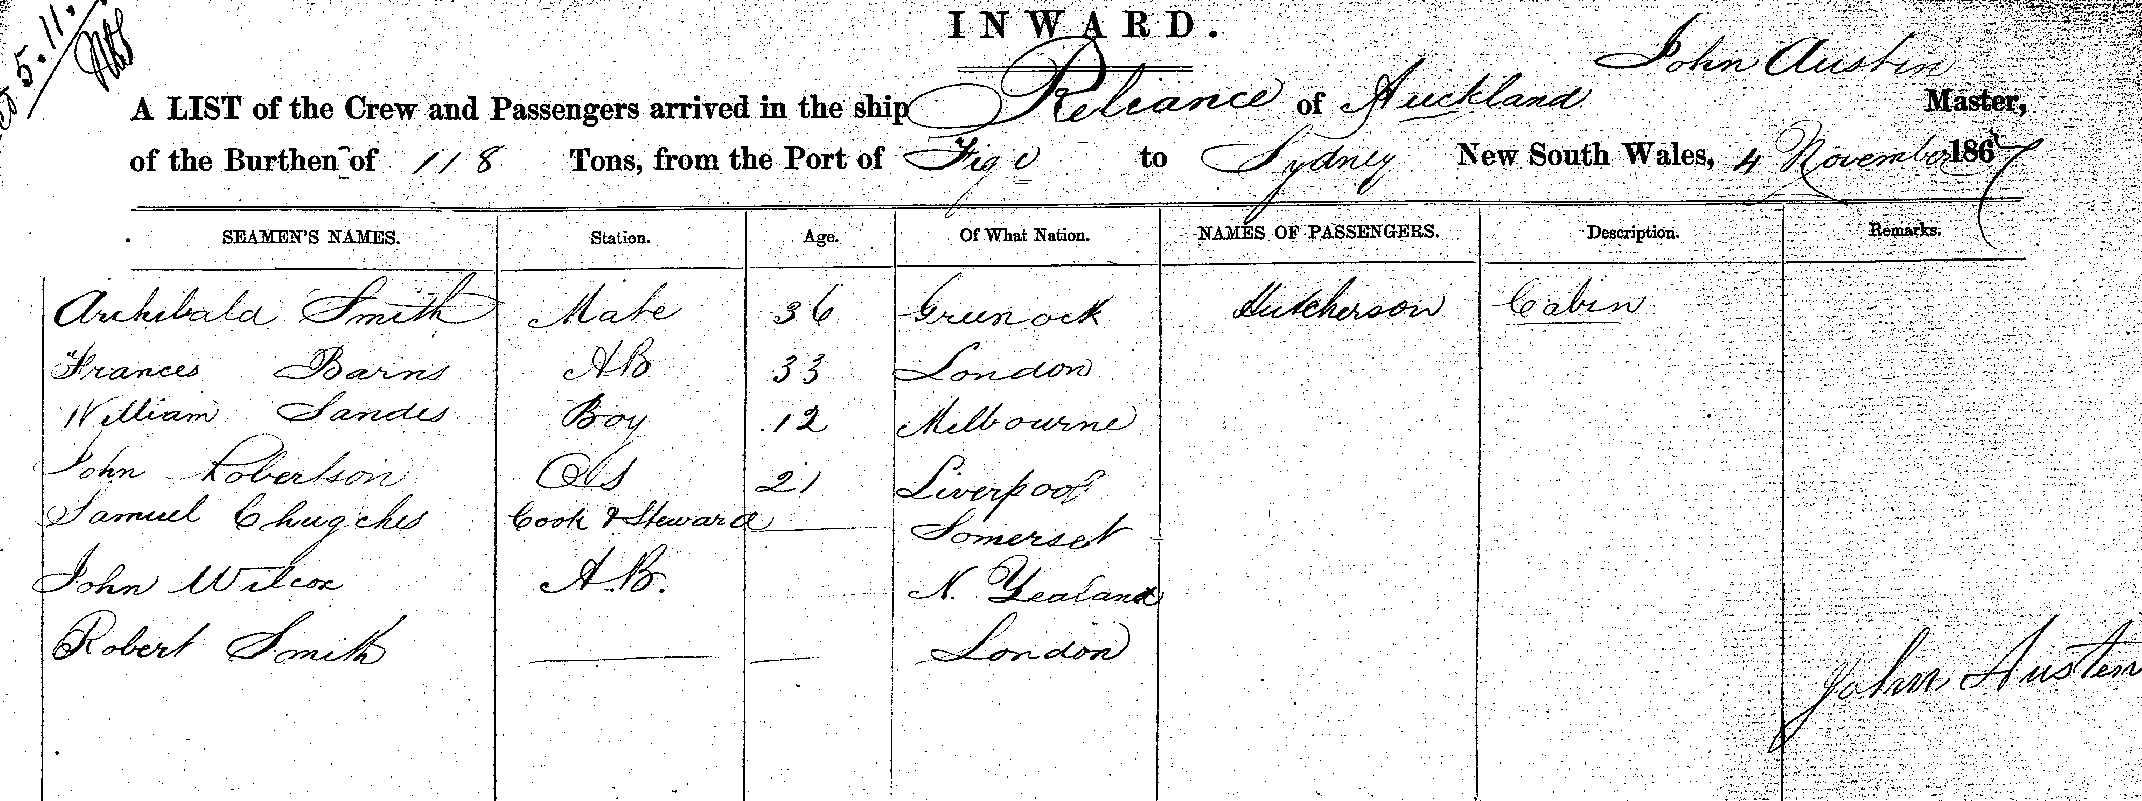 5.11.
INWARD.
A LIST of the Crew and Passengers arrived in the ship Reliance of Auckland John Austin Master,
of the Burthen of 118 Tons, from the Port of Figi to Sydney New South Wales, 4 November 1867
SEAMEN'S NAMES. Station. Age. Of What Nation. NAMES OF PASSENGERS. Description. Remarks.
Archibald Smith Mate 36 Greenock Hutcherson Cabin
Frances Barns AB 33 London
William Sandes Boy 12 Melbourne
John Robertson OS 21 Liverpool
Samuel Chugches Cook & Steward — Somerset
John Wilcox A.B. N. Zealand
Robert Smith — — London
John Austin